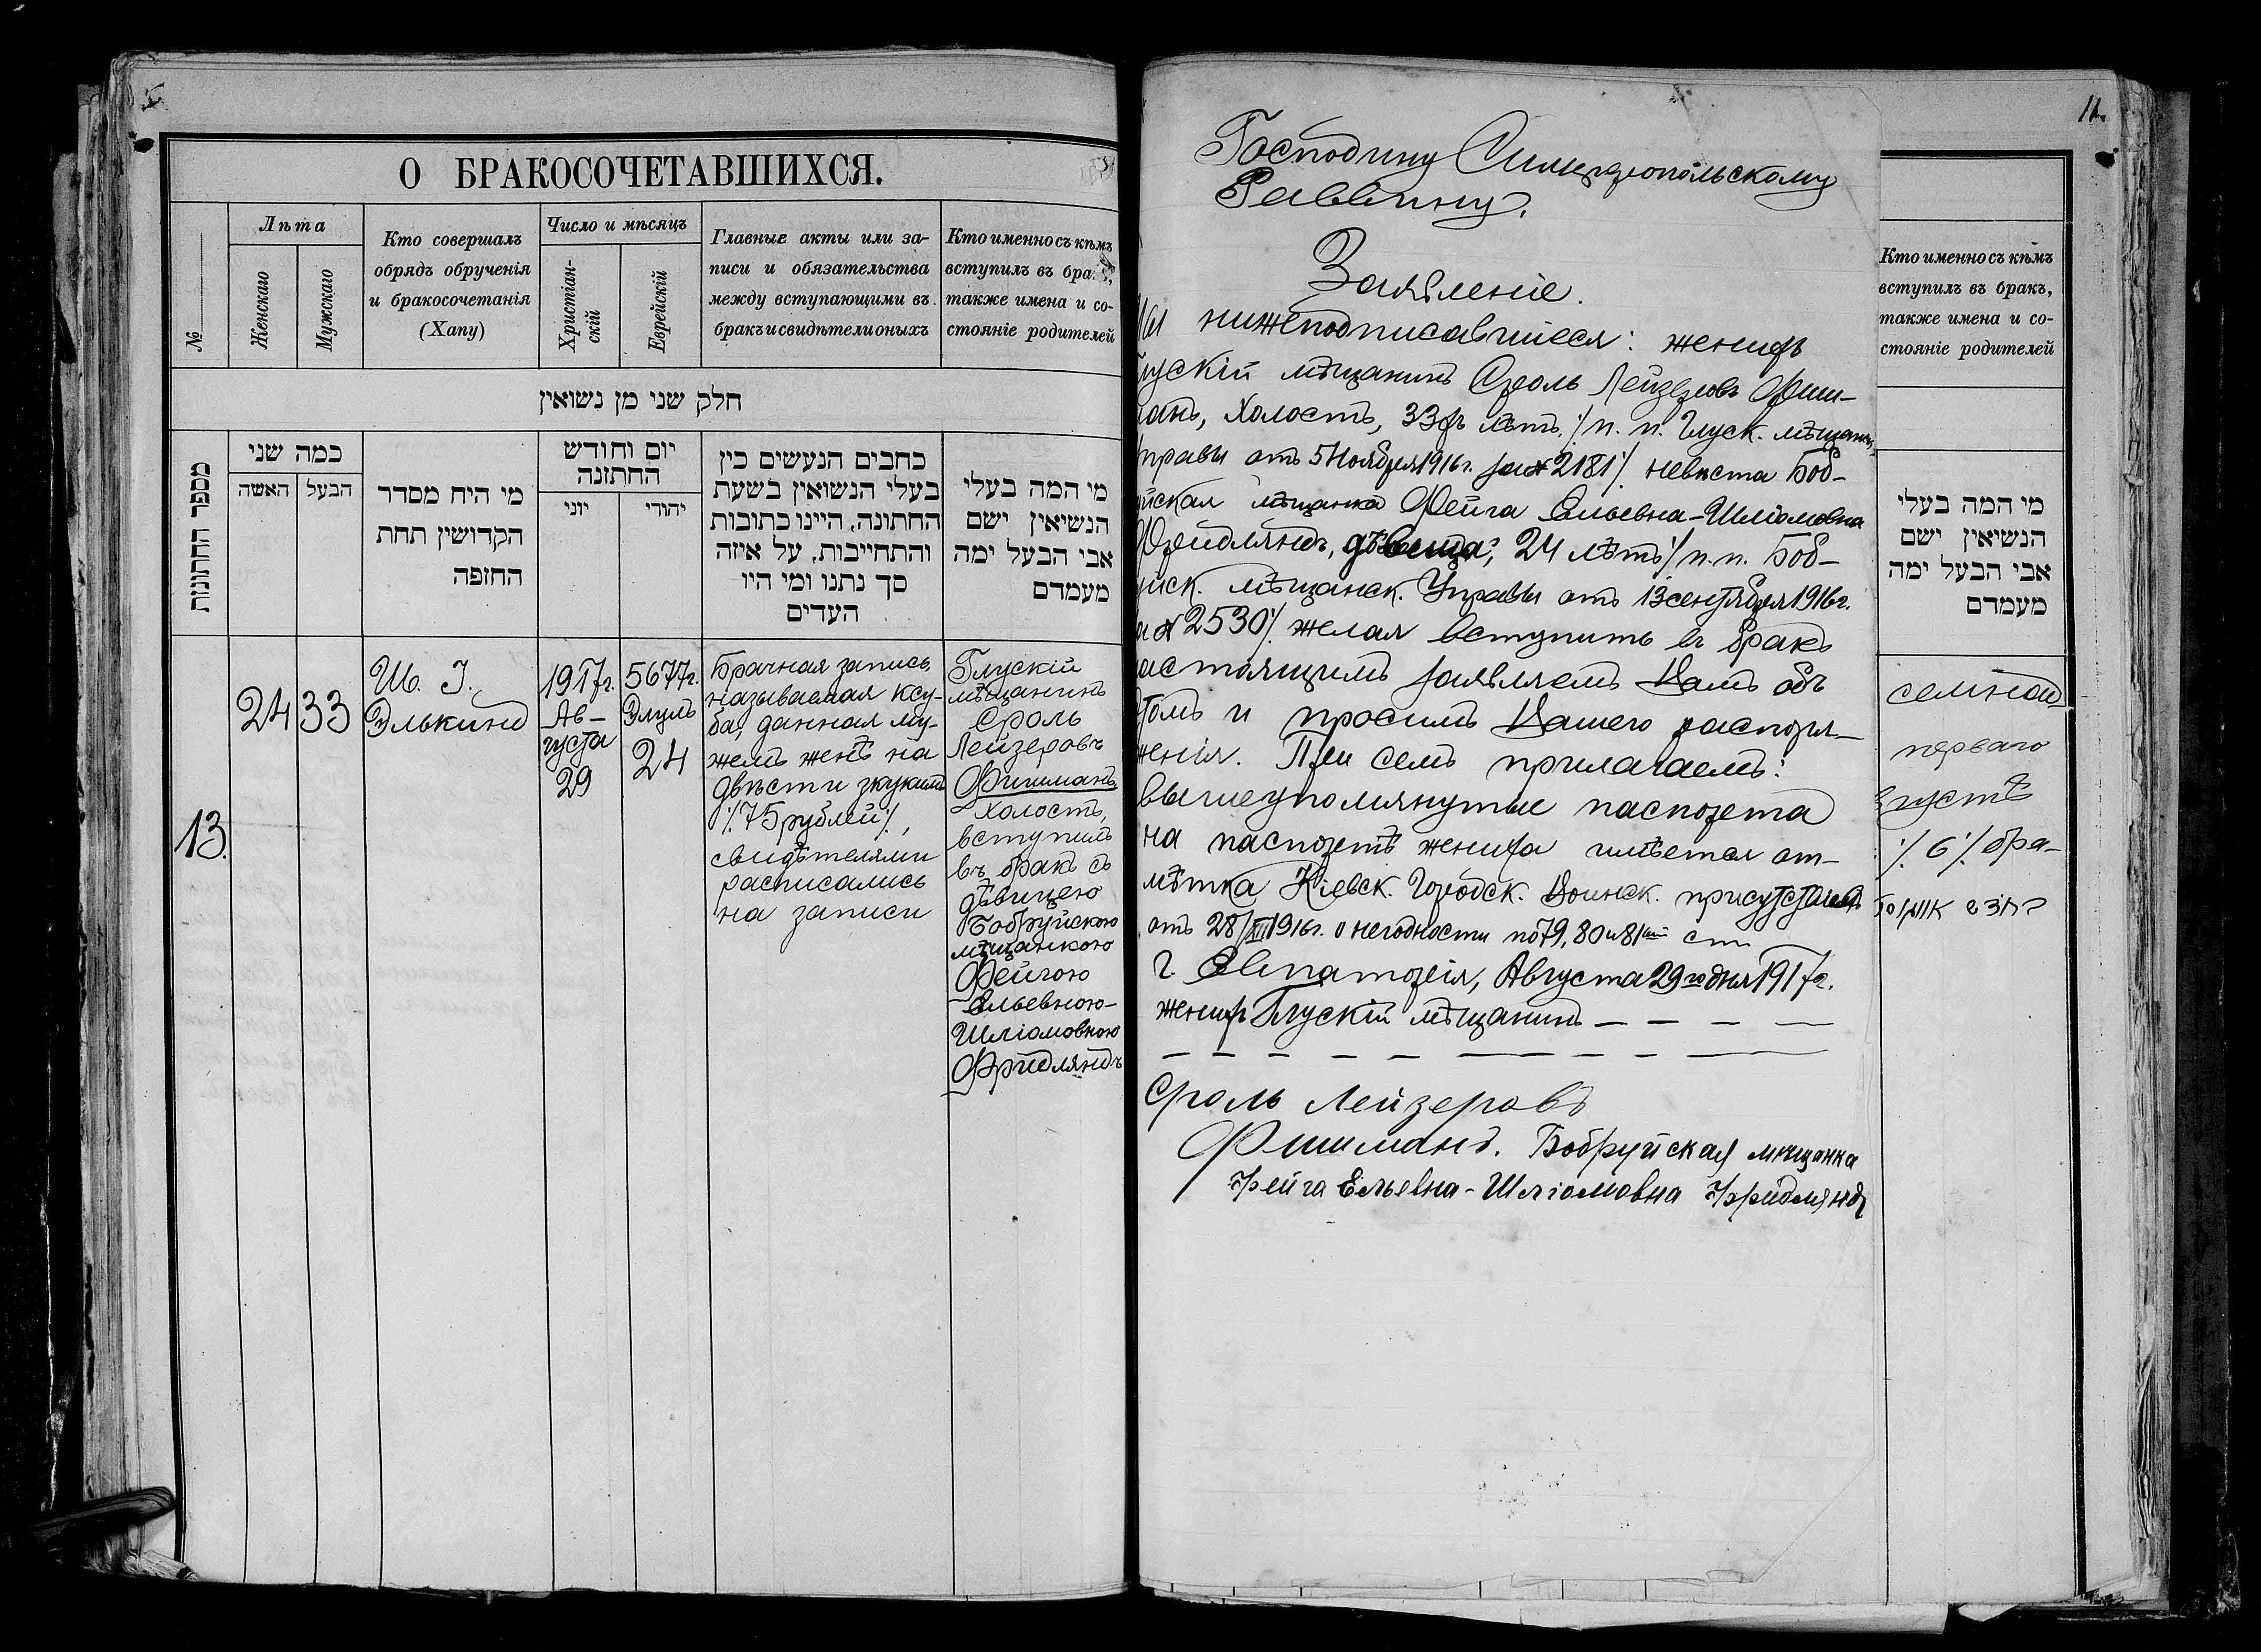 О БРАКОСОЧЕТАВШИХСЯ.
№
Лѣта
Женскаго
Мужскаго
Кто совершалъ
обрядъ обрученія
и бракосочетанія
(Хапу)
Число и мѣсяцъ
Христіан-
скій
Еврейскій
Главные акты или за-
писи и обязательства
между вступающими въ
бракъ и свидѣтели оныхъ
Кто именно съ кѣмъ
вступилъ въ бра
также имена и со-
стояніе родителей
חלק שני מן נשואין
מספר החתונות
כמה שני
האשה
הבעל
מי היח מסדר
הקדושין תחת
החופה
יום וחודש
החתונה
יוני
יהודי
כחבים הנעשים כין
בעלי הנשואין בשעת
החתונה, היינו כתובות
והתחייבות, על איזה
סך נתנו ומי היו
העדים
מי המה בעלי
הנשיאין ישם
אבי הבעל ימה
מעמדם
13.
24
33
Ш. I.
Элькинд
1917г.
Ав-
густа
29
5677г.
Элуль
24
Брачная запись,
называемая ксу-
ба, данная му-
жемъ женѣ на
двѣсти зкукимъ
⁒75 рублей⁒,
свидѣтелями
расписались
на записи
Глускій
мѣщанинъ
Сроль
Лейзеровъ
Фишманъ,
Холостъ,
вступилъ
въ бракъ съ
дѣвицею
Бобруйскою
мѣщанкою
Фейгою
Эльевною-
Шліомовною
Фридляндъ
Господину Симферопольскому
Раввину.
Заявленіе.
нижеподписавшіеся: женихъ
лускій мѣщанинъ Сроль Лейзеровъ Фиш-
манъ, холостъ, 33хъ лѣтъ ⁒ п. п. Глуск. мѣщанск.
правы отъ 5 Ноября 1916г. за № 2181⁒ невѣста Боб-
йская мѣщанка Фейга Эльевна-Шліомовна
Фридляндъ, дѣвица, 24 лѣтъ ⁒ п. п. Боб-
йск. мѣщанск. Управы отъ 13 сентября 1916г.
а № 2530⁒ желая вступить въ бракъ
астоящимъ заявляемъ Вамъ объ
томъ и просимъ Вашего распоря-
женія. При семъ прилагаемъ:
вышеупомянутые паспорта
на паспортѣ жениха имѣется от-
мѣтка Кіевск. Городск. Воинск. присутствія
отъ 28/XII 1916г. о негодности по 79, 80 и 81ой ст.
г. Евпаторія, Августа 29го дня 1917г.
женихъ Глускій мѣщанинъ — — — —
Сроль Лейзеровъ
Фишманъ. Бобруйская мѣщанка
Фейга Ельевна-Шліомовна Фридляндъ
11.
Кто именно съ кѣмъ
вступилъ въ бракъ,
также имена и со-
стояніе родителей
מי המה בעלי
הנשיאין ישם
אבי הבעל ימה
מעמדם
семнад
перваго
густѣ
⁒ 6 ⁒ бра-